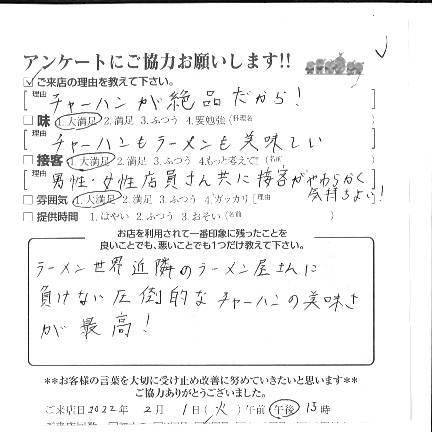 アンケートにご協力お願いします!!
ご来店の理由を教えて下さい。
理由 チャーハンが絶品だから!
味 1.大満足 2.満足 3.ふつう 4.要勉強(料理名 )
チャーハンもラーメンも美味しい
接客 1.大満足 2.満足 3.ふつう 4.もっと考えて!!(名前 )
理由 男性・女性店員さん共に接客がやわらかく
気持ちよい!
雰囲気 1.大満足 2.満足 3.ふつう 4.ガッカリ [理由
提供時間 1.はやい 2.ふつう 3.おそい(名前 )
お店を利用されて一番印象に残ったことを
良いことでも、悪いことでも1つだけ教えて下さい。
ラーメン世界近隣のラーメン屋さんに
負けない圧倒的なチャーハンの美味さ
が最高!
**お客様の言葉を大切に受け止め改善に努めていきたいと思います**
ご協力ありがとうございました。
ご来店日 2022年 2月 1日(火) 午前 午後 13時